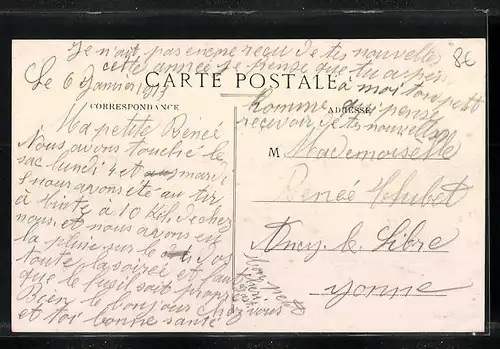 Je n'ait pas encore reçu de tes nouvelles
cette année je pense que tu a pensé
à moi ton petit
homme qui pense
recevoir de tes nouvelles
8€
Le 6 Janvier
CARTE POSTALE
CORRESPONDANCE
ADRESSE
Ma petite Renée
Nous avons touché le
sac lundi 4 et mardi
nous avons été au tir
à à 10 Kil. de chez
nous et nous avons eu
la pluie sur le dos
toute la soirée et faut
que le fusil soit propre
Bien le bonjour chez vous
et toi bonne santé
M Mademoiselle
Renée Hubet
Ancy-le-Libre
Yonne